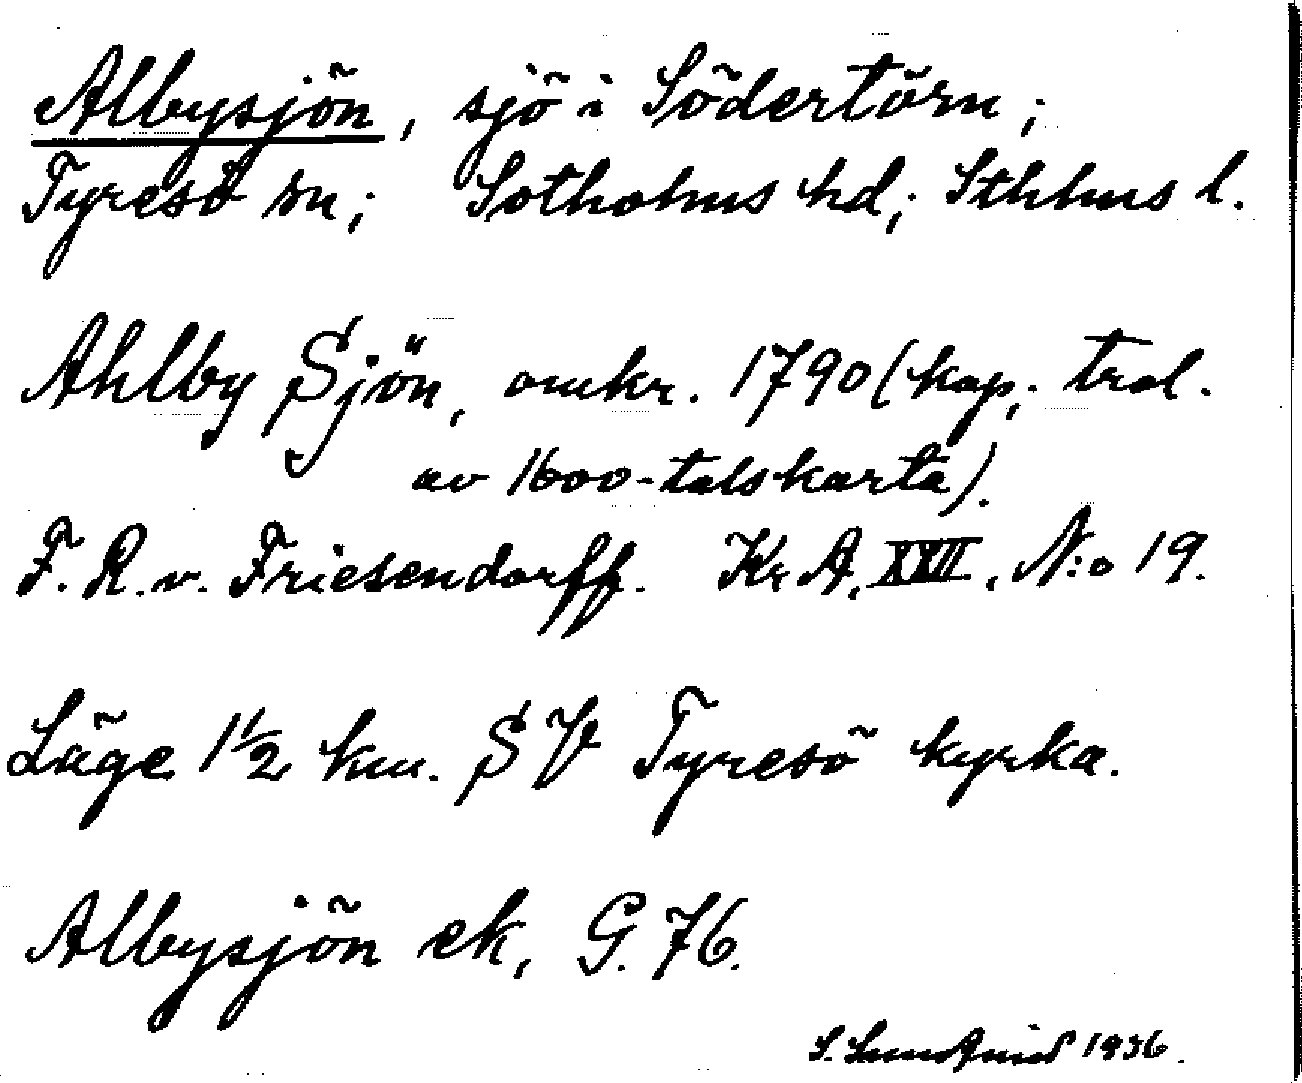 Albysjön, sjö i Södertörn;
Tyresö sn; Sotholms hd; Sthlms l.
Ahlby Sjön, omkr. 1790 (kop. trol.
av 1600-talskarta).
F. R. v. Friesendorff. Kr A, XXII, N:o 19.
Läge 1 1/2 km. SV Tyresö kyrka.
Albysjön ek, G. 76.
S. Sundqvist 1936.